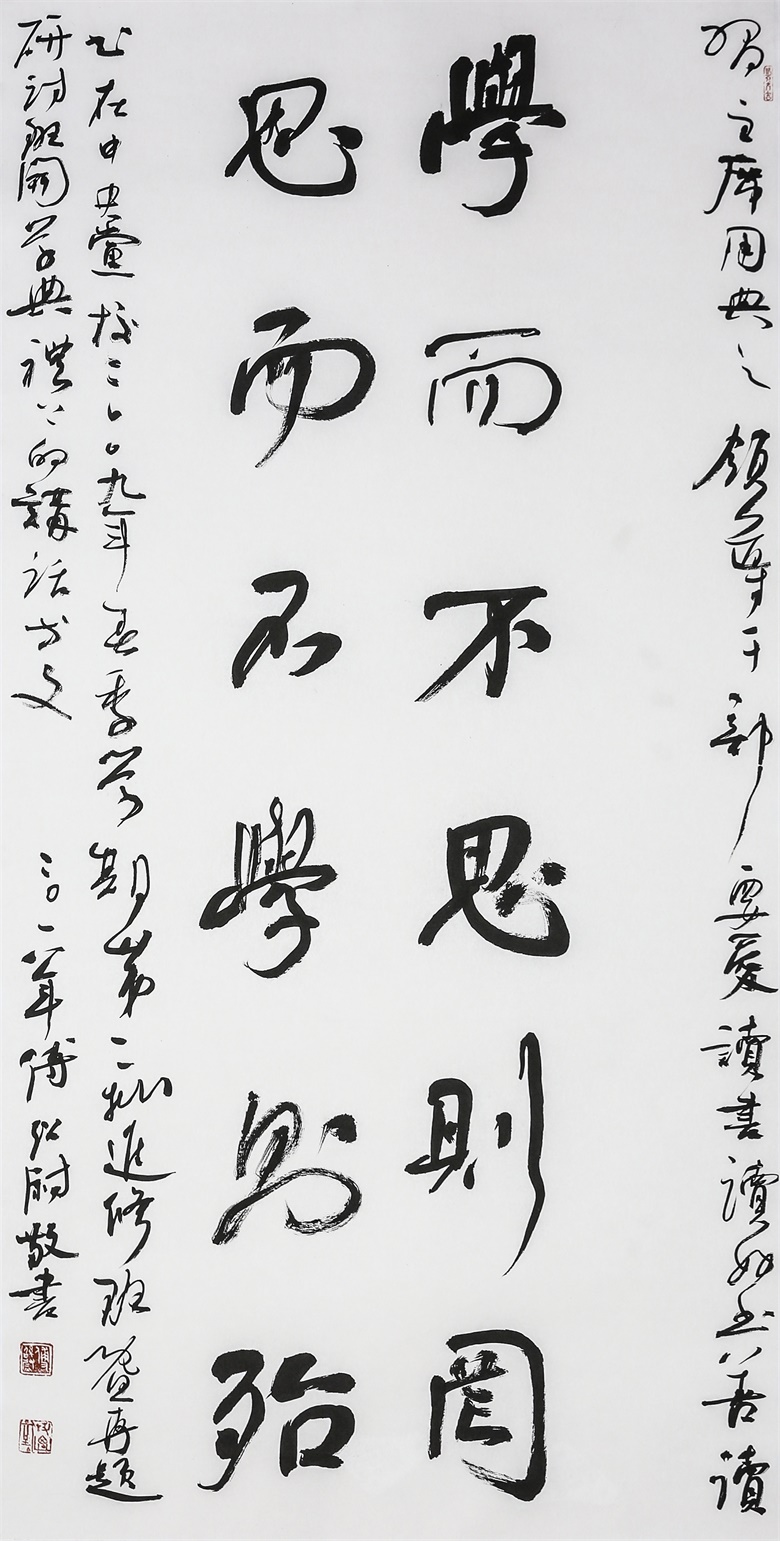 習主席用典之領導干部要愛讀書讀好书善讀
學而不思則罔
思而不學則殆
书在中央黨校二〇〇九年春季学期第二批進修班暨專題
研討班開学典禮上的講話文
二〇一八年傅弘尉敬書